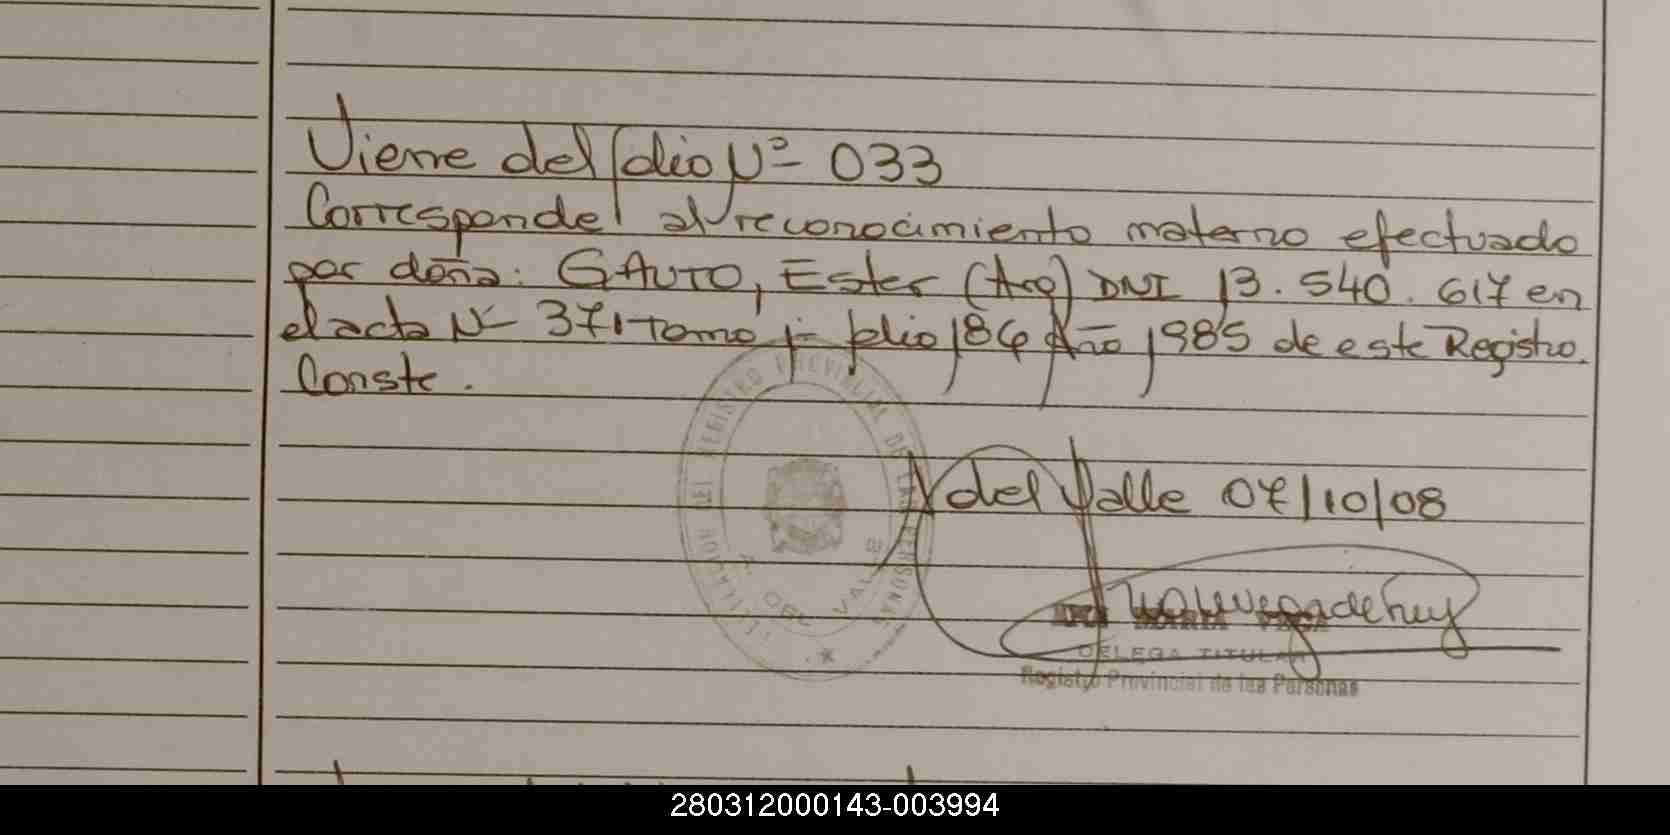 Viene del folio Nº 033
Corresponde al reconocimiento materno efectuado
por doña: GAUTO, Ester (Arg) DNI 13.540.617 en
el acta Nº 371 tomo I folio 186 Año 1985 de este Registro.
Conste.
A del Valle 07/10/08
DELEGA TITULAR
Registro Provincial de las Personas
REGISTRO PROVINCIAL DE LAS PERSONAS
A DEL VALLE
280312000143-003994